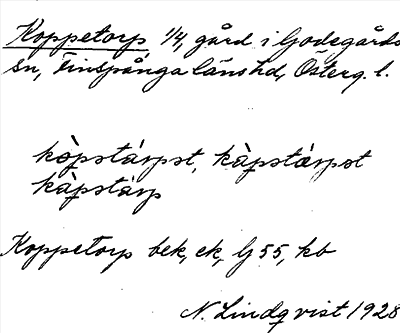 Koppetorp 1/4, gård i Godegårds
sn, Finspånga länshd, Österg. l.
kòpstárpst, kàpstárpst
kàpstárp
Koppetorp bek, ek, lj 55, kb
N. Lindqvist 1928